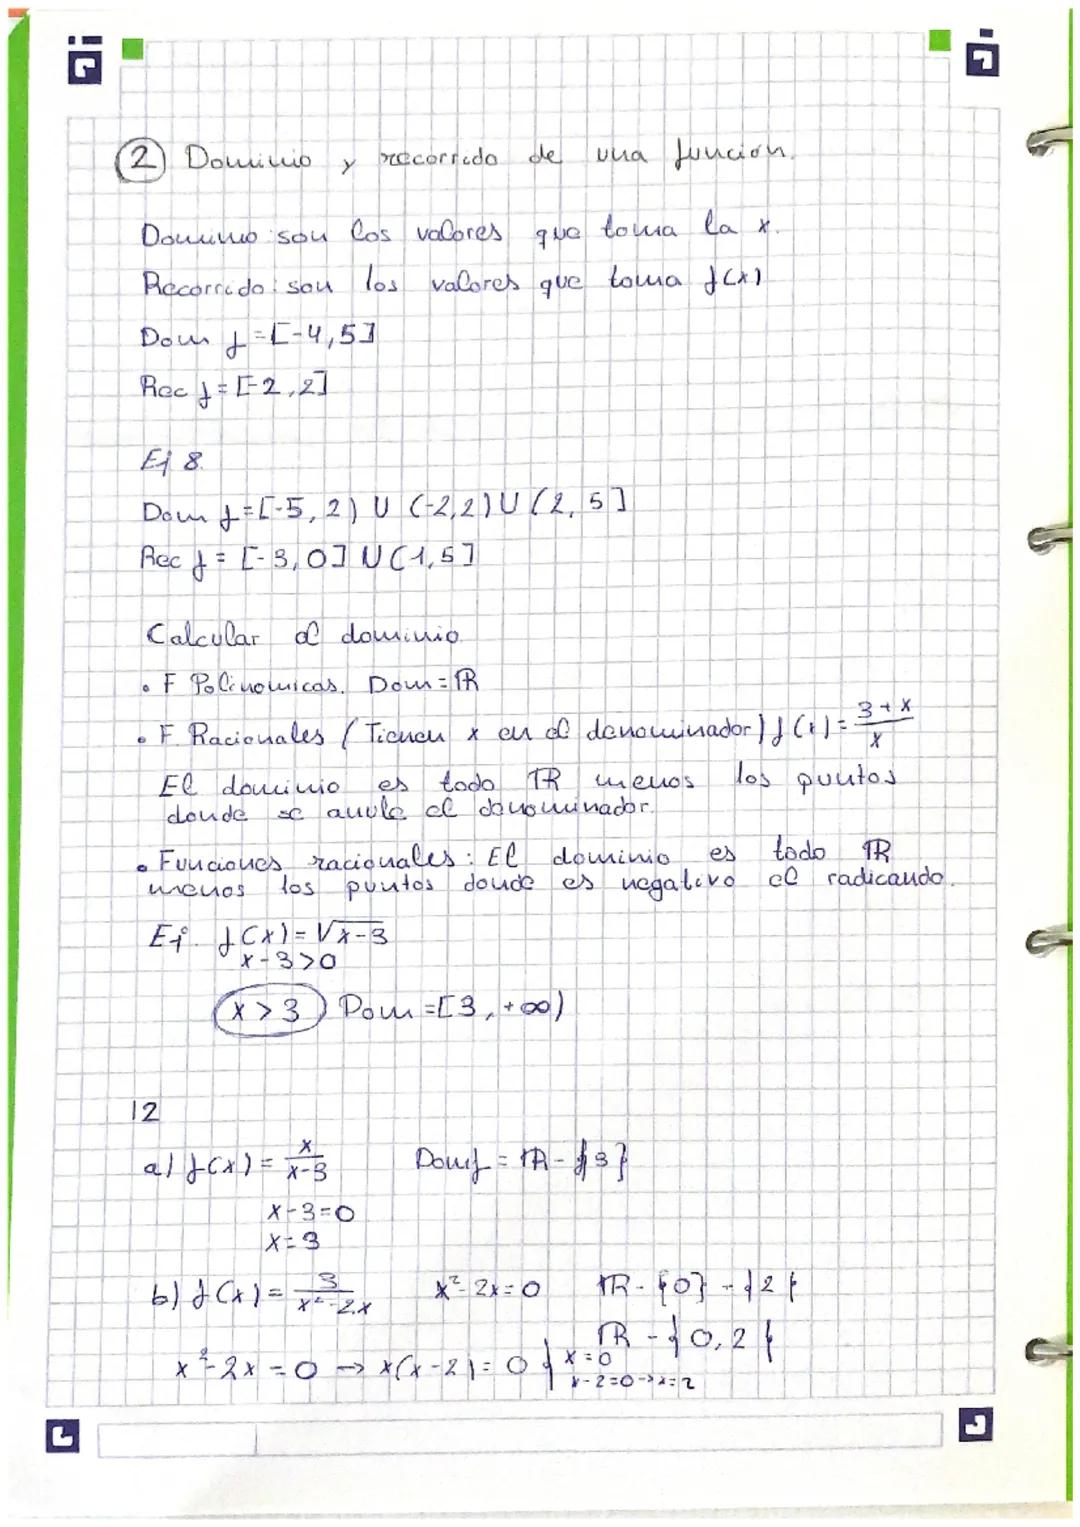 2 Dominio y recorrido de una función.
Dominio son los valores que toma la x.
Recorrido: son los valores que toma f(x)
Dom f = [-4,5]
Rec f = [-2,2]
Ej 8.
Dom f = [-5,2) U (-2,2) U (2,5]
Rec f = [-3,0] U (1,5]
Calcular el dominio
• F Polinomicas. Dom = ℝ
• F. Racionales (Tienen x en el denominador) f(x) = (3+x)/x
El dominio es todo ℝ menos los puntos
donde se anula el denominador.
• Funciones racionales: El dominio es todo ℝ
menos los puntos donde es negativo el radicando.
Ej. f(x) = √x-3
x-3>0
x > 3 Dom = [3, +∞)
12
a) f(x) = x/(x-3) Dom f = ℝ - {3}
x-3=0
x=3
b) f(x) = 3/(x²-2x) x²-2x=0 ℝ - {0} - {2}
ℝ - {0,2}
x²-2x=0 → x(x-2)=0 { x=0
x-2=0→x=2